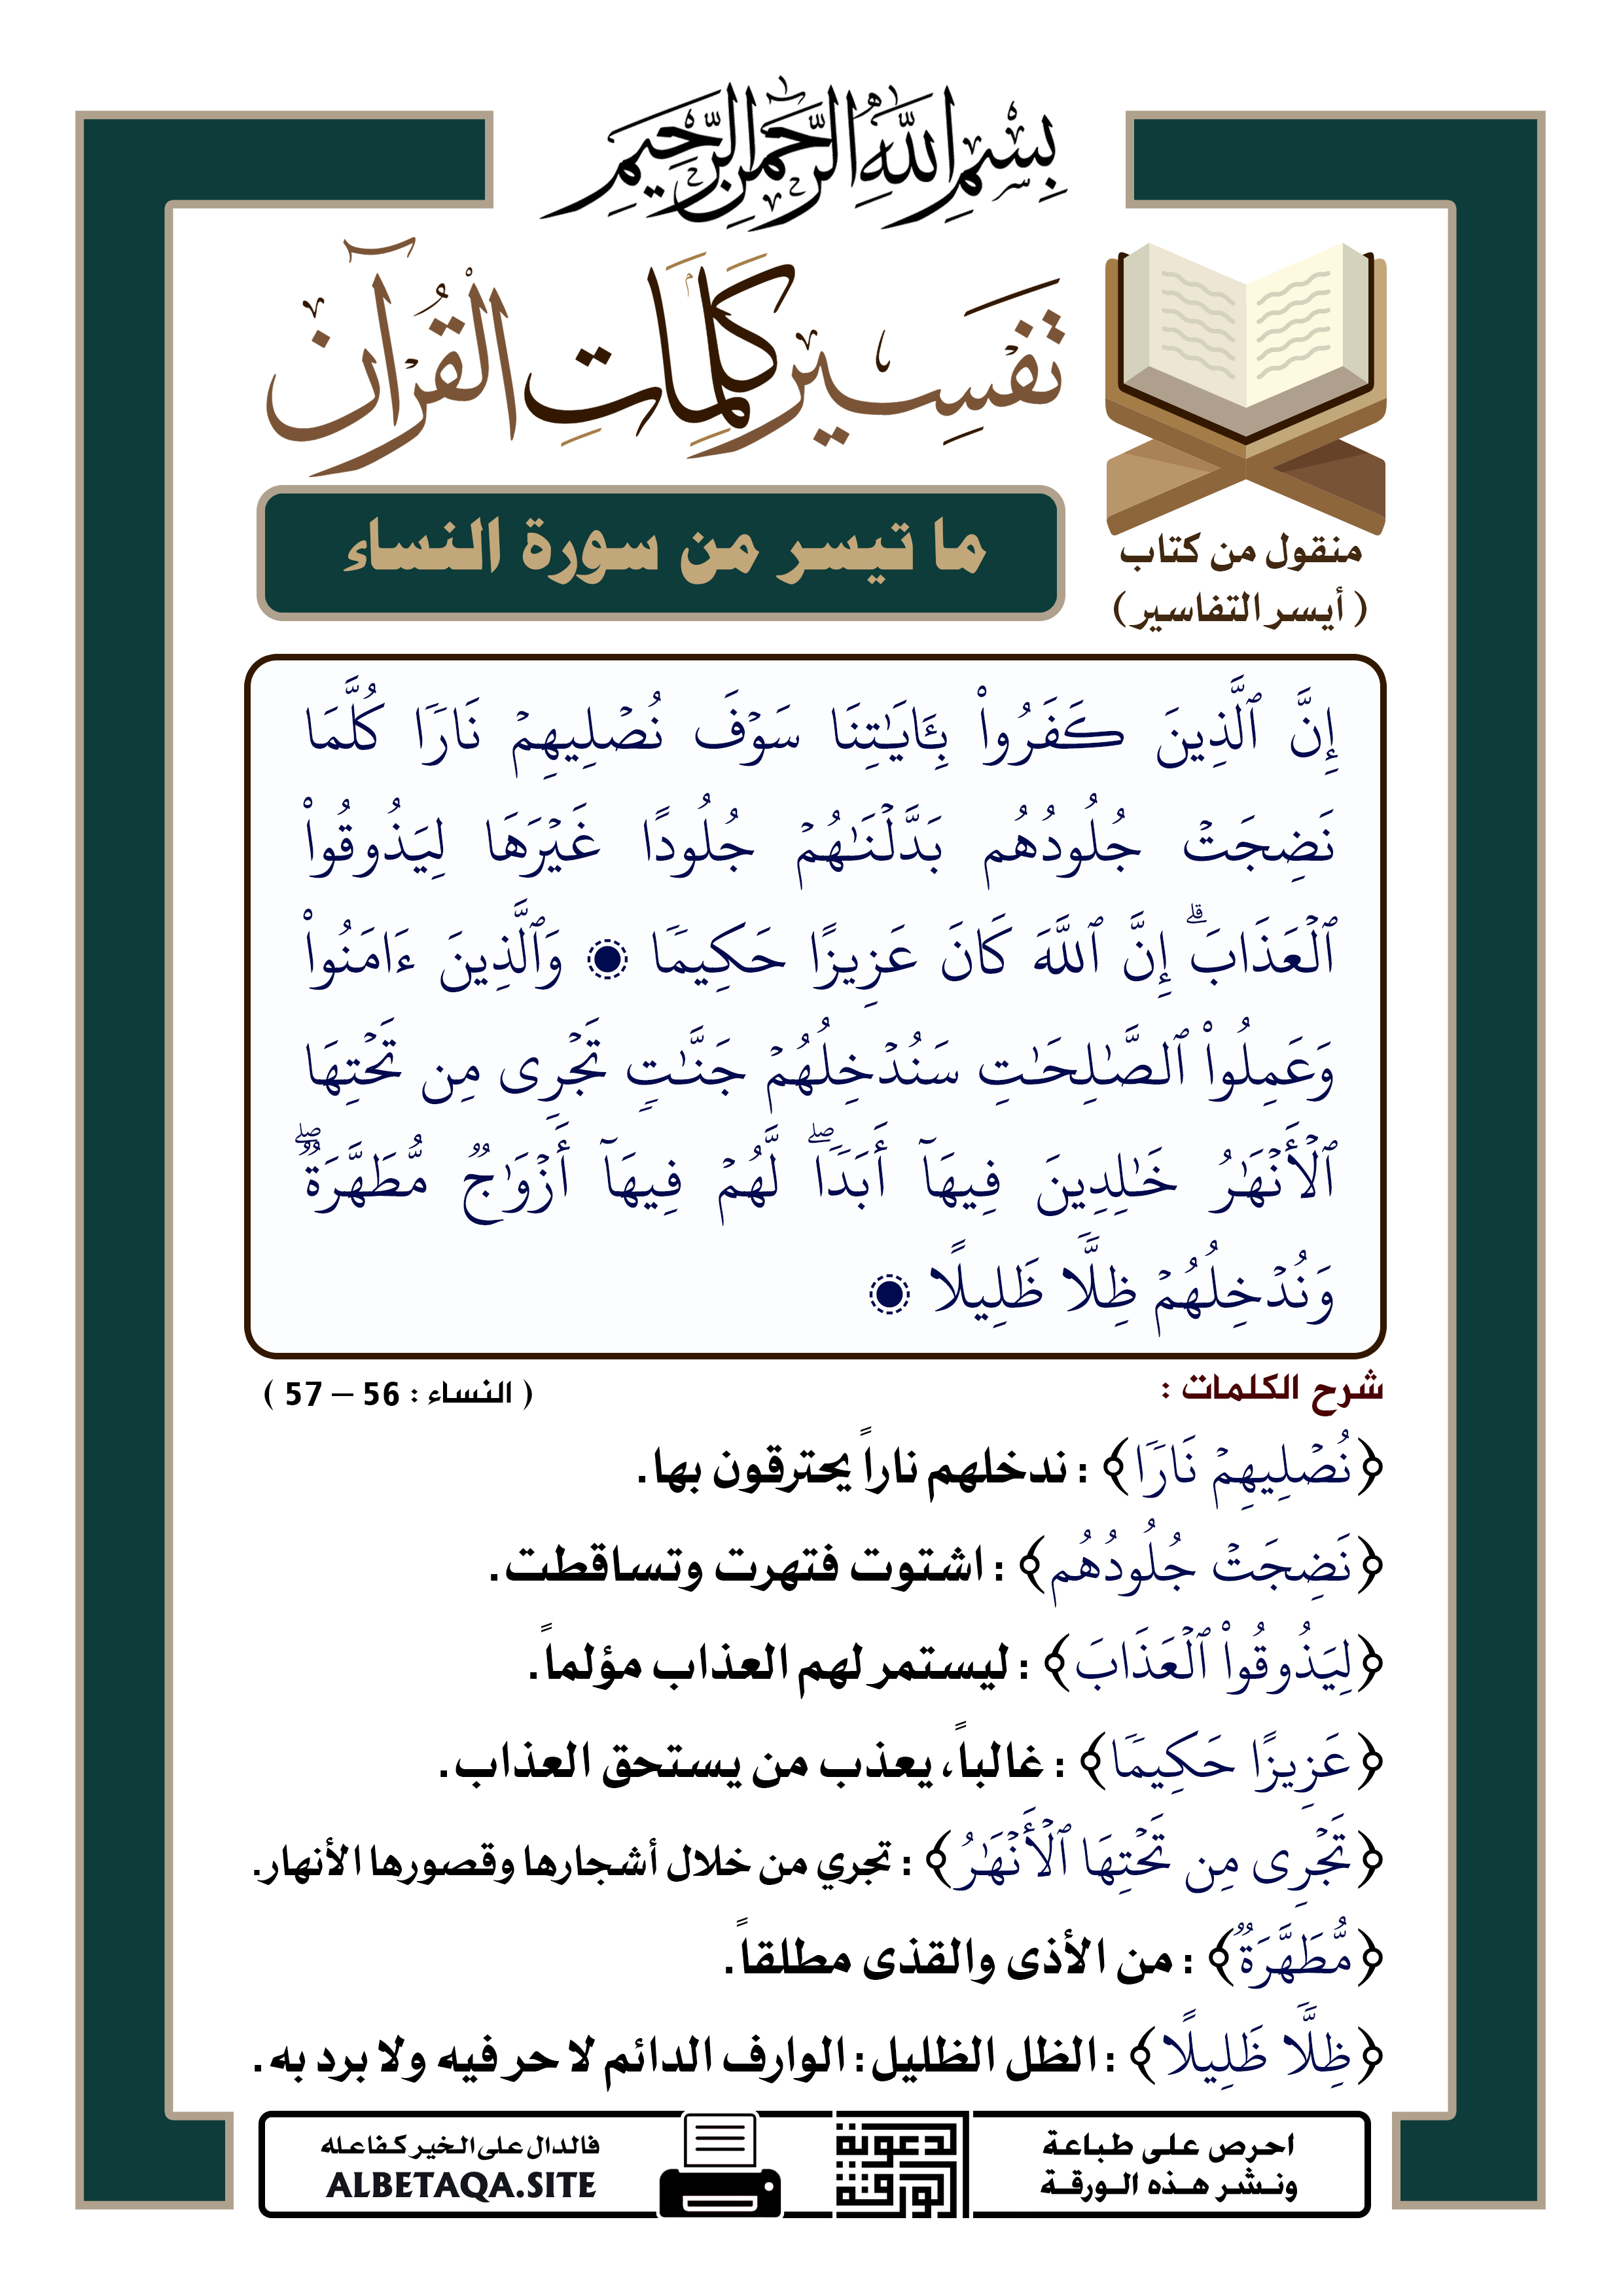 بِسْمِ اللَّهِ الرَّحْمَٰنِ الرَّحِيمِ
تَفْسِير كَلِمَاتِ القُرْآن
ما تيسر من سورة النساء
منقول من كتاب
( أيسر التفاسير )
إِنَّ ٱلَّذِينَ كَفَرُوا۟ بِـَٔايَـٰتِنَا سَوْفَ نُصْلِيهِمْ نَارًا كُلَّمَا
نَضِجَتْ جُلُودُهُم بَدَّلْنَـٰهُمْ جُلُودًا غَيْرَهَا لِيَذُوقُوا۟
ٱلْعَذَابَ ۗ إِنَّ ٱللَّهَ كَانَ عَزِيزًا حَكِيمًا ۝ وَٱلَّذِينَ ءَامَنُوا۟
وَعَمِلُوا۟ ٱلصَّـٰلِحَـٰتِ سَنُدْخِلُهُمْ جَنَّـٰتٍ تَجْرِى مِن تَحْتِهَا
ٱلْأَنْهَـٰرُ خَـٰلِدِينَ فِيهَآ أَبَدًا ۖ لَّهُمْ فِيهَآ أَزْوَٰجٌ مُّطَهَّرَةٌ ۖ
وَنُدْخِلُهُمْ ظِلًّا ظَلِيلًا ۝
شرح الكلمات :
( النساء : 56 – 57 )
﴿نُصْلِيهِمْ نَارًا﴾ : ندخلهم ناراً يحترقون بها.
﴿نَضِجَتْ جُلُودُهُم﴾ : اشتوت فتهرت وتساقطت.
﴿لِيَذُوقُوا۟ ٱلْعَذَابَ﴾ : ليستمر لهم العذاب مؤلماً.
﴿عَزِيزًا حَكِيمًا﴾ : غالباً، يعذب من يستحق العذاب.
﴿تَجْرِى مِن تَحْتِهَا ٱلْأَنْهَـٰرُ﴾ : تجري من خلال أشجارها وقصورها الأنهار.
﴿مُّطَهَّرَةٌ﴾ : من الأذى والقذى مطلقاً.
﴿ظِلًّا ظَلِيلًا﴾ : الظل الظليل: الوارف الدائم لا حر فيه ولا برد به.
احرص على طباعة
ونشر هذه الورقة
الدعوية
الورقة
فالدال على الخير كفاعله
ALBETAQA.SITE